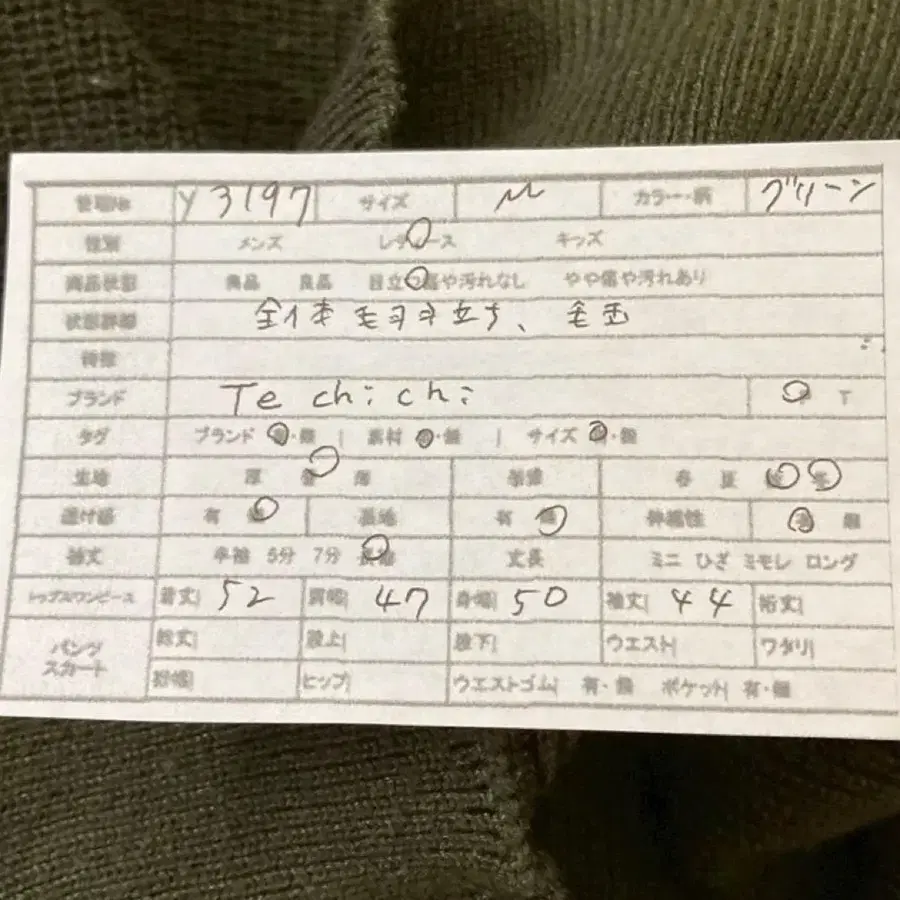 管理No Y3197 サイズ M カラー・柄 グリーン
性別 メンズ レディース キッズ
商品状態 美品 良品 目立つ傷や汚れなし やや傷や汚れあり
状態詳細 全体毛羽立ち、毛玉
特徴
ブランド Te chichi T
タグ ブランド 有・無 | 素材 有・無 | サイズ 有・無
生地 厚 普 薄 季節 春 夏 秋 冬
透け感 有 無 裏地 有 無 伸縮性 有 無
袖丈 半袖 5分 7分 長袖 丈長 ミニ ひざ ミモレ ロング
トップスワンピース 着丈| 52 肩幅| 47 身幅| 50 袖丈| 44 裄丈|
パンツ スカート 総丈| 股上| 股下| ウエスト| ワタリ|
裾幅| ヒップ| ウエストゴム| 有・無 ポケット| 有・無